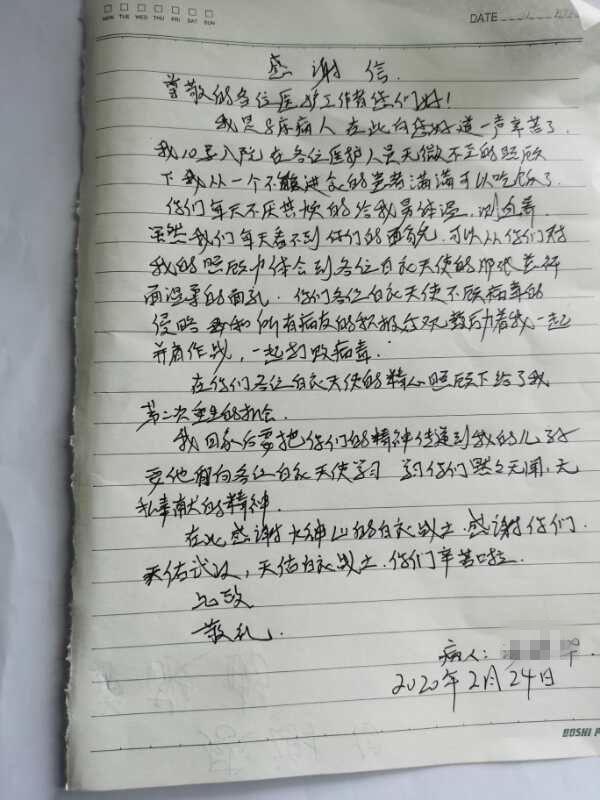 MON TUE WED THU FRI SAT SUN
DATE
感谢信.
尊敬的各位医护工作者您们好!
我是8床病人 在此向您们道一声辛苦了.
我10号入院 在各位医护人员无微不至的照顾
下 我从一个不能进食的患者满满可以吃饭了.
你们每天不厌其烦的给我量体温,测
虽然我们每天看不到你们的面 可以从你们对
我的照顾中体会到各位白衣天使的那张
而温柔的面孔. 你们各位白衣天使不顾病毒的
侵 我和所有病友的积极乐观 着我一起
并肩作战, 一起打败病毒.
在你们各位白衣天使的精心照顾下给了我
第二次重生的机会.
我回家后要把你们的精神传递到我的儿
要他 向各位白衣天使学习 学习你们默々无闻,无
私奉献的精神.
在此感谢火神山的白衣战士. 感谢你们.
天佑武汉, 天佑白衣战士. 你们辛苦啦.
此致
敬礼.
病人:
2020年2月24日
BOSHI